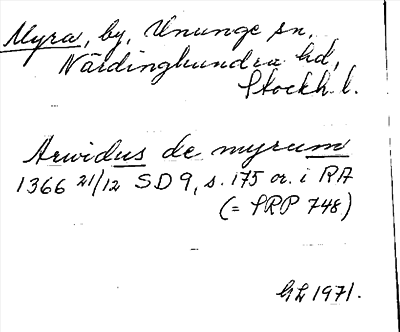 Myra, by, Ununge sn,
Närdinghundra hd,
Stockh. l.
Arvidus de myrum
1366 21/12 SD 9, s. 175 or. i RA
(= SRP 748)
GL 1971.